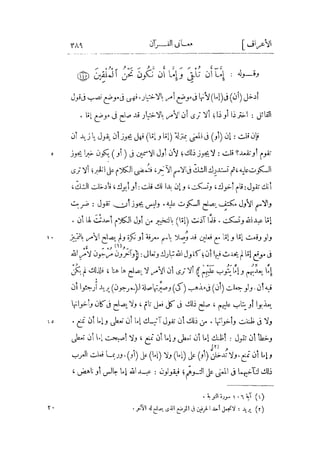 الأعراف ] معـانى القـرآن ٣٨٩
وقـــوله : إِمَّآ أَن تُلْقِىَ وَإِمَّآ أَن نَّكُونَ نَحْنُ ٱلْمُلْقِينَ
أدخل (أن) فى (إما) لأنها فى موضع أمر بالاختيار. فهى فى موضع نصب فى قول
القائل : اختر ذا أو ذا؛ ألا ترى أن الأمر بالاختيار قد صلح فى موضع إمّا .
فإن قلت : إن (أو) فى المعنى بمنزلة (إمّا وإمّا) فهل يجوز أن يقول يا زيد أن
٥ تقوم أو تقعد؟ قلت : لا يجوز ذلك؛ لأن أول الاسمين فى (أو) يكون خبرا يجوز
السكوت عليه، ثم تستدرك الشكّ فى الاسم الآخر، فتُمضى الكلام على الخبر؛ ألا ترى
أنك تقول: قام أخوك، وتسكت، وإن بدا لك قلت: أو أبوك، فأدخلت الشكّ،
والاسم الأول مكتفٍ يصلح السكوت عليه. وليس يجوز أن تقول : ضربت
إمّا عبد الله وتسكت. فلمّا آذنت (إمّا) بالتخيير من أول الكلام أحدثْتَ لها أن .
١٠ ولو وقعت إمّا وإمّا مع فعلين قد وُصلا باسم معرفة أو نكرة ولم يصلح الأمر بالتمييز
فى موقع إمّا لم يحدث فيها أن؛ كقول الله تبارك وتعالى: (وَآخَرُونَ مُرْجَوْنَ لِأَمْرِ اللهِ
إِمَّا يُعَذِّبُهُم وإمَّا يَتُوب عَلَيْهِم) ألا ترى أن الأمر لا يصلح ها هنا، فلذلك لم يكن
فيه أن. ولو جعلت (أن) فى مذهب (كى) وصيّرتها صلة لـ(مرجون) يريد أرجئوا أن
يعذبوا أو يتاب عليهم، صلح ذلك فى كل فعل تامّ، ولا يصلح فى كان وأخواتها
١٥ ولا فى ظننت وأخواتها. من ذلك أن تقول آتيك إما أن تعطى وإما أن تمنع .
وخطأ أن تقول : أظنك إما أن تعطى وإما أن تمنع، ولا أصبحت إما أن تعطى
وإما أن تمنع. ولا تُدخلنّ (أو) على (إما) ولا (إما) على (أو). وربما فعلت العرب
ذلك لتآخيهما فى المعنى على التوهّم؛ فيقولون : عبد الله إما جالس أو ناهض،
(١) آية ١٠٦ سورة التوبة .
٢٠ (٢) يريد : لا تجعل أحد الحرفين فى الموضع الذى يصلح له الآخر .